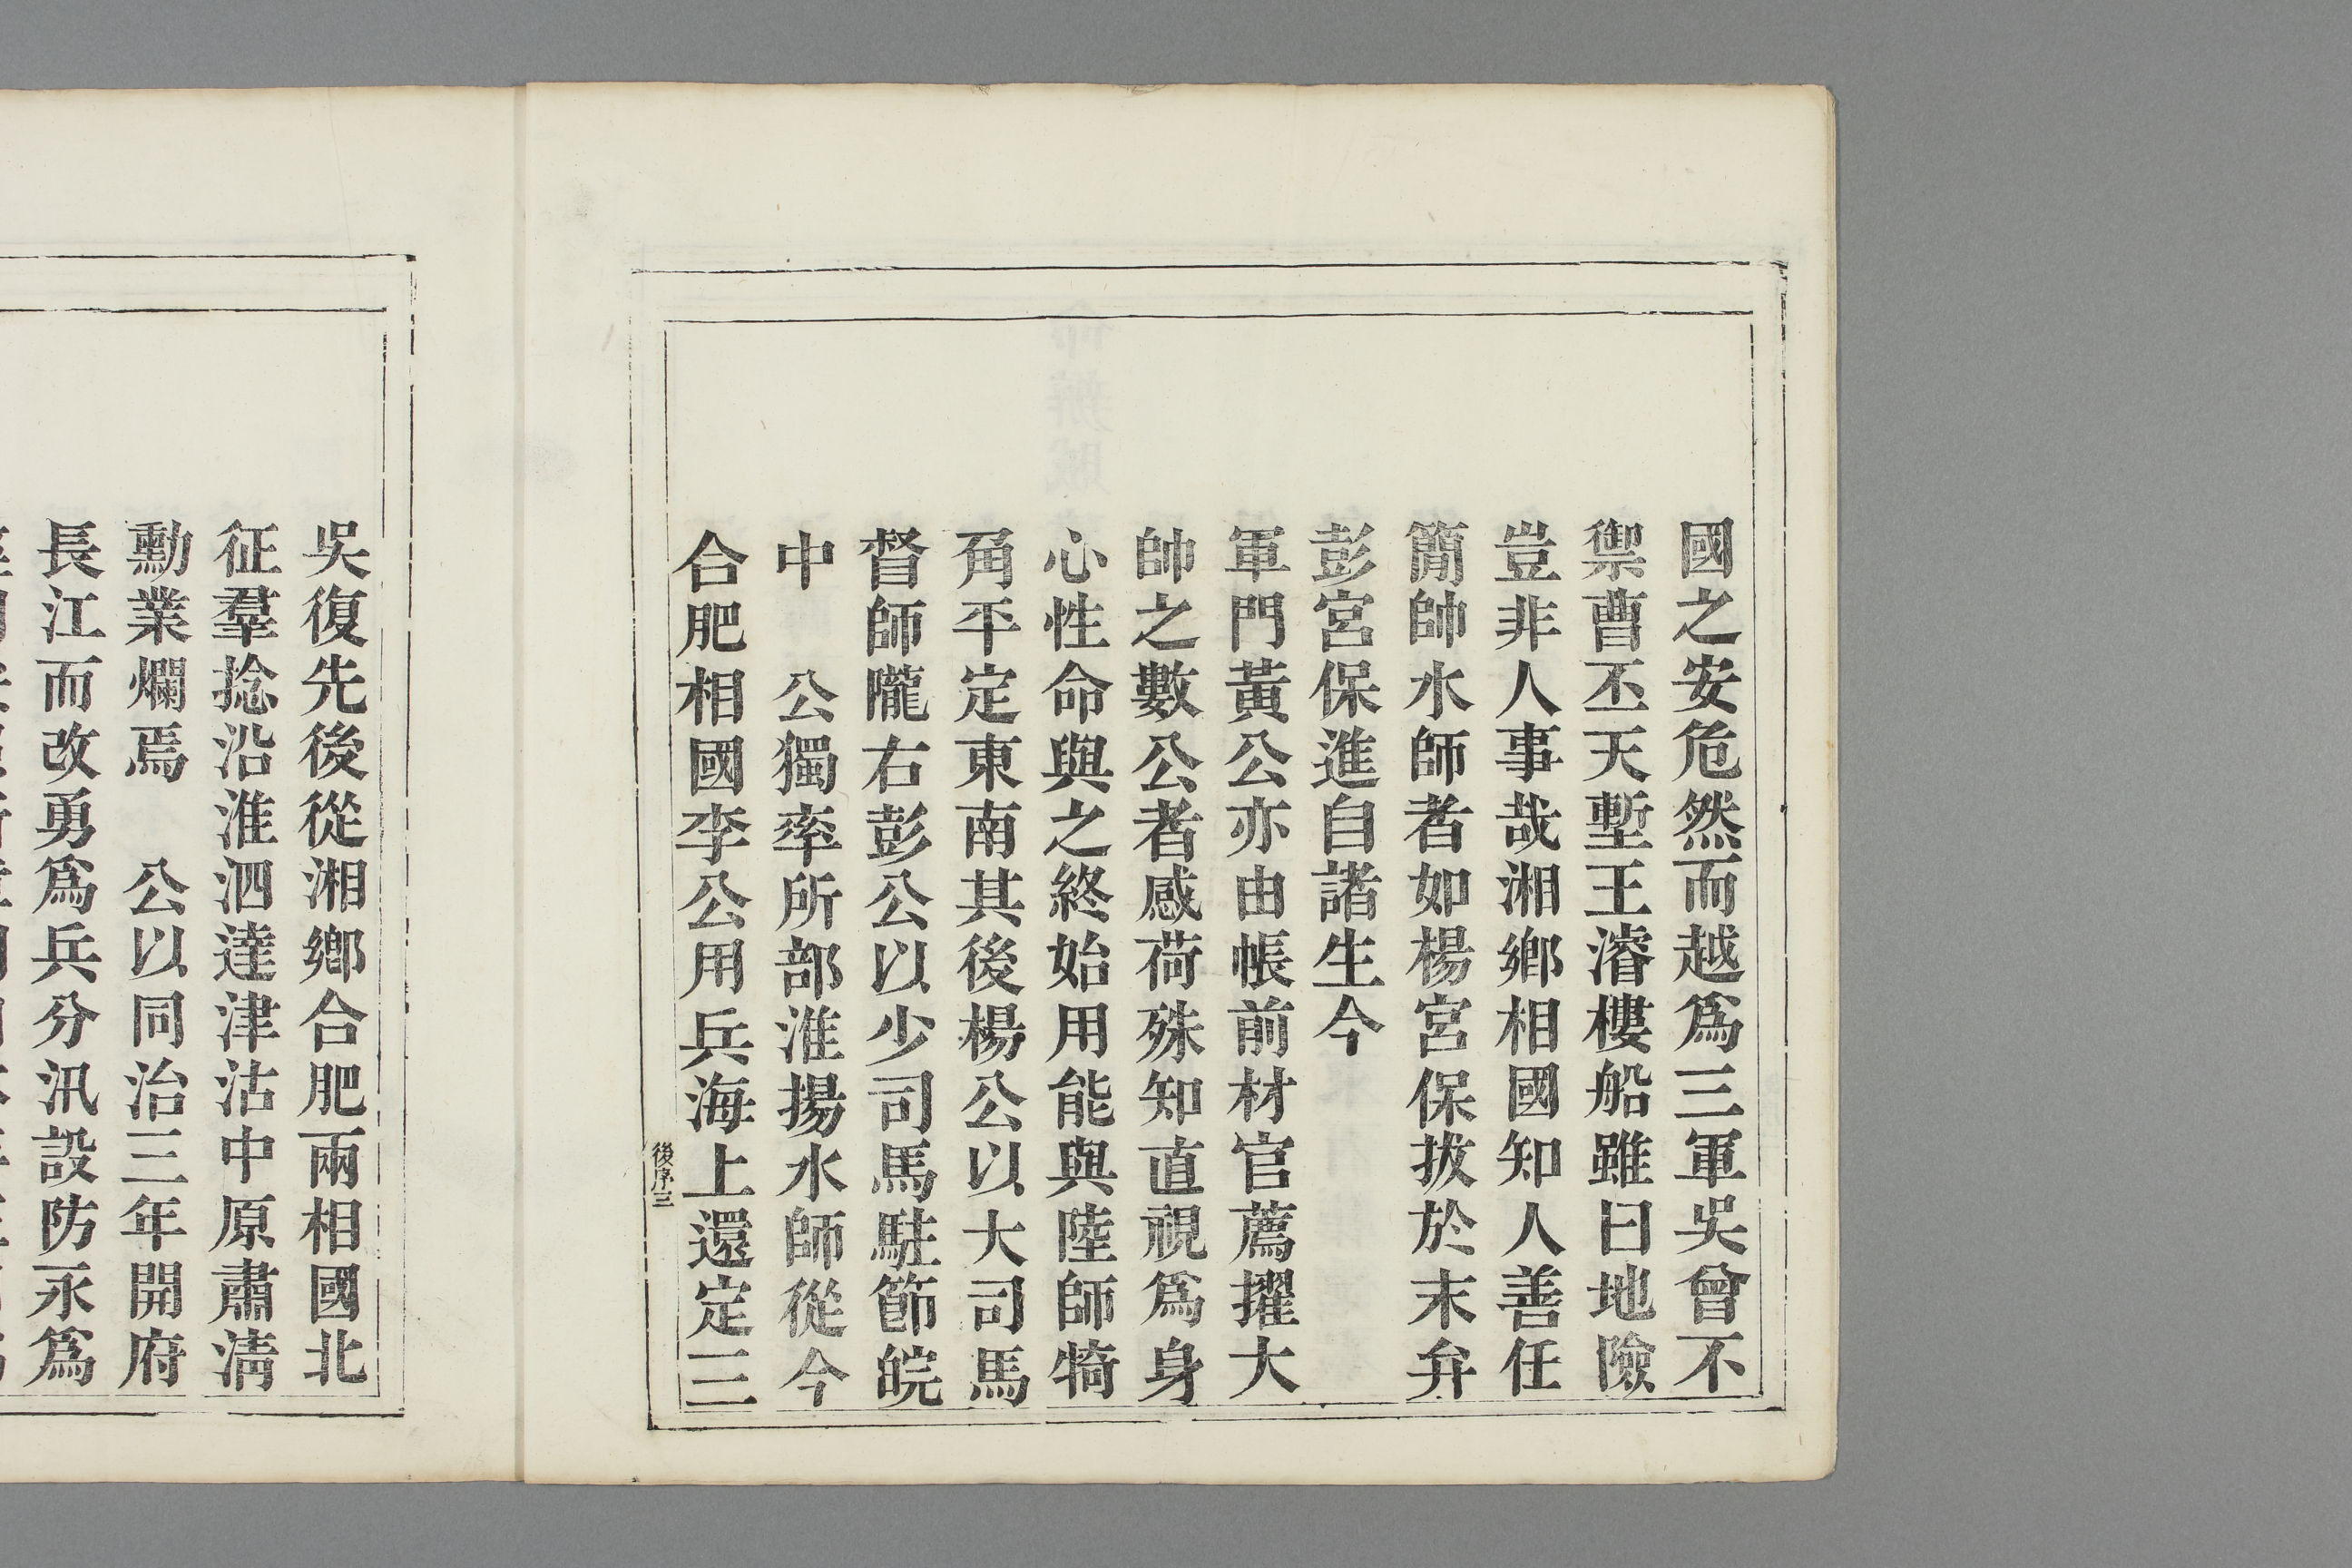 國之安危然而越爲三軍吳曾不
禦曹丕天塹王濬樓船雖曰地險
豈非人事哉湘鄉相國知人善任
簡帥水師者如楊宮保拔於末弁
彭宮保進自諸生今
軍門黃公亦由帳前材官薦擢大
帥之數公者感荷殊知直視爲身
心性命與之終始用能與陸師犄
角平定東南其後楊公以大司馬
督師隴右彭公以少司馬駐節皖
中　公獨率所部淮揚水師從今
合肥相國李公用兵海上還定三
後序三
吳復先後從湘鄉合肥兩相國北
征羣捻沿淮泗達津沽中原肅淸
勳業爛焉　公以同治三年開府
長江而改勇爲兵分汛設防永爲